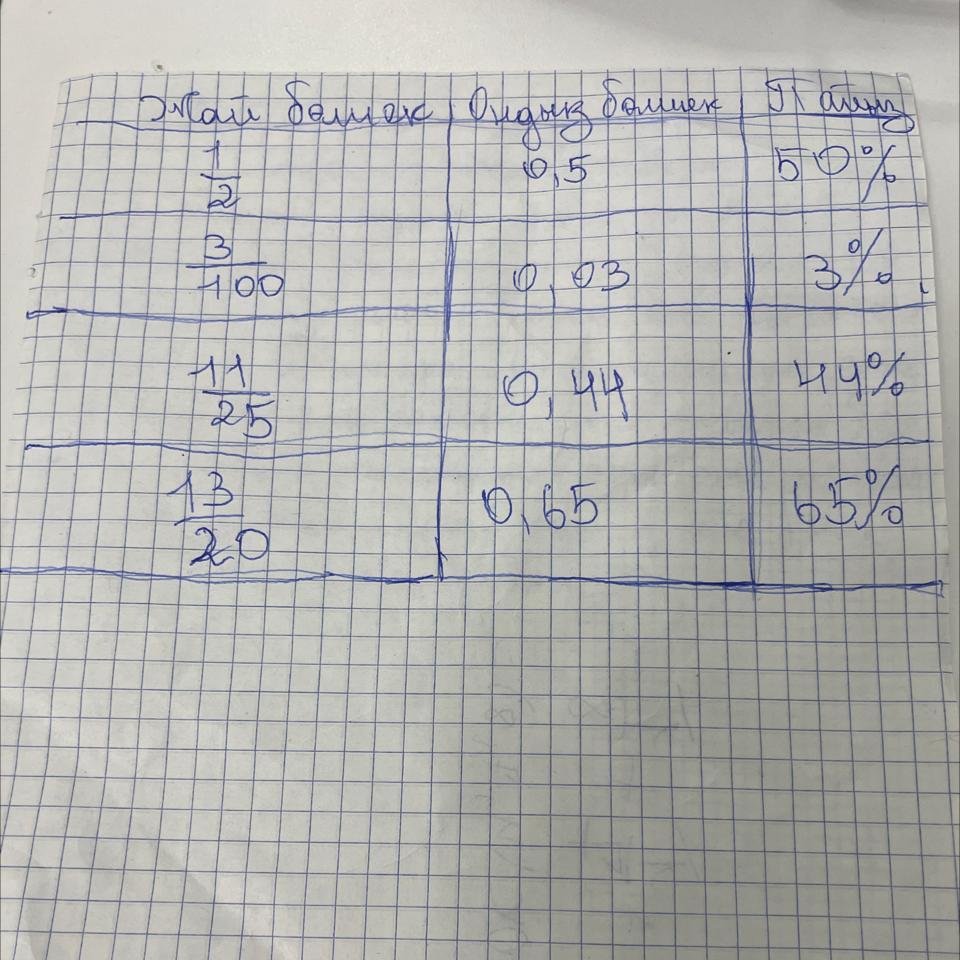 Жай бөлшек Ондық бөлшек Пайыз
1/2 0,5 50%
3/100 0,03 3%
11/25 0,44 44%
13/20 0,65 65%